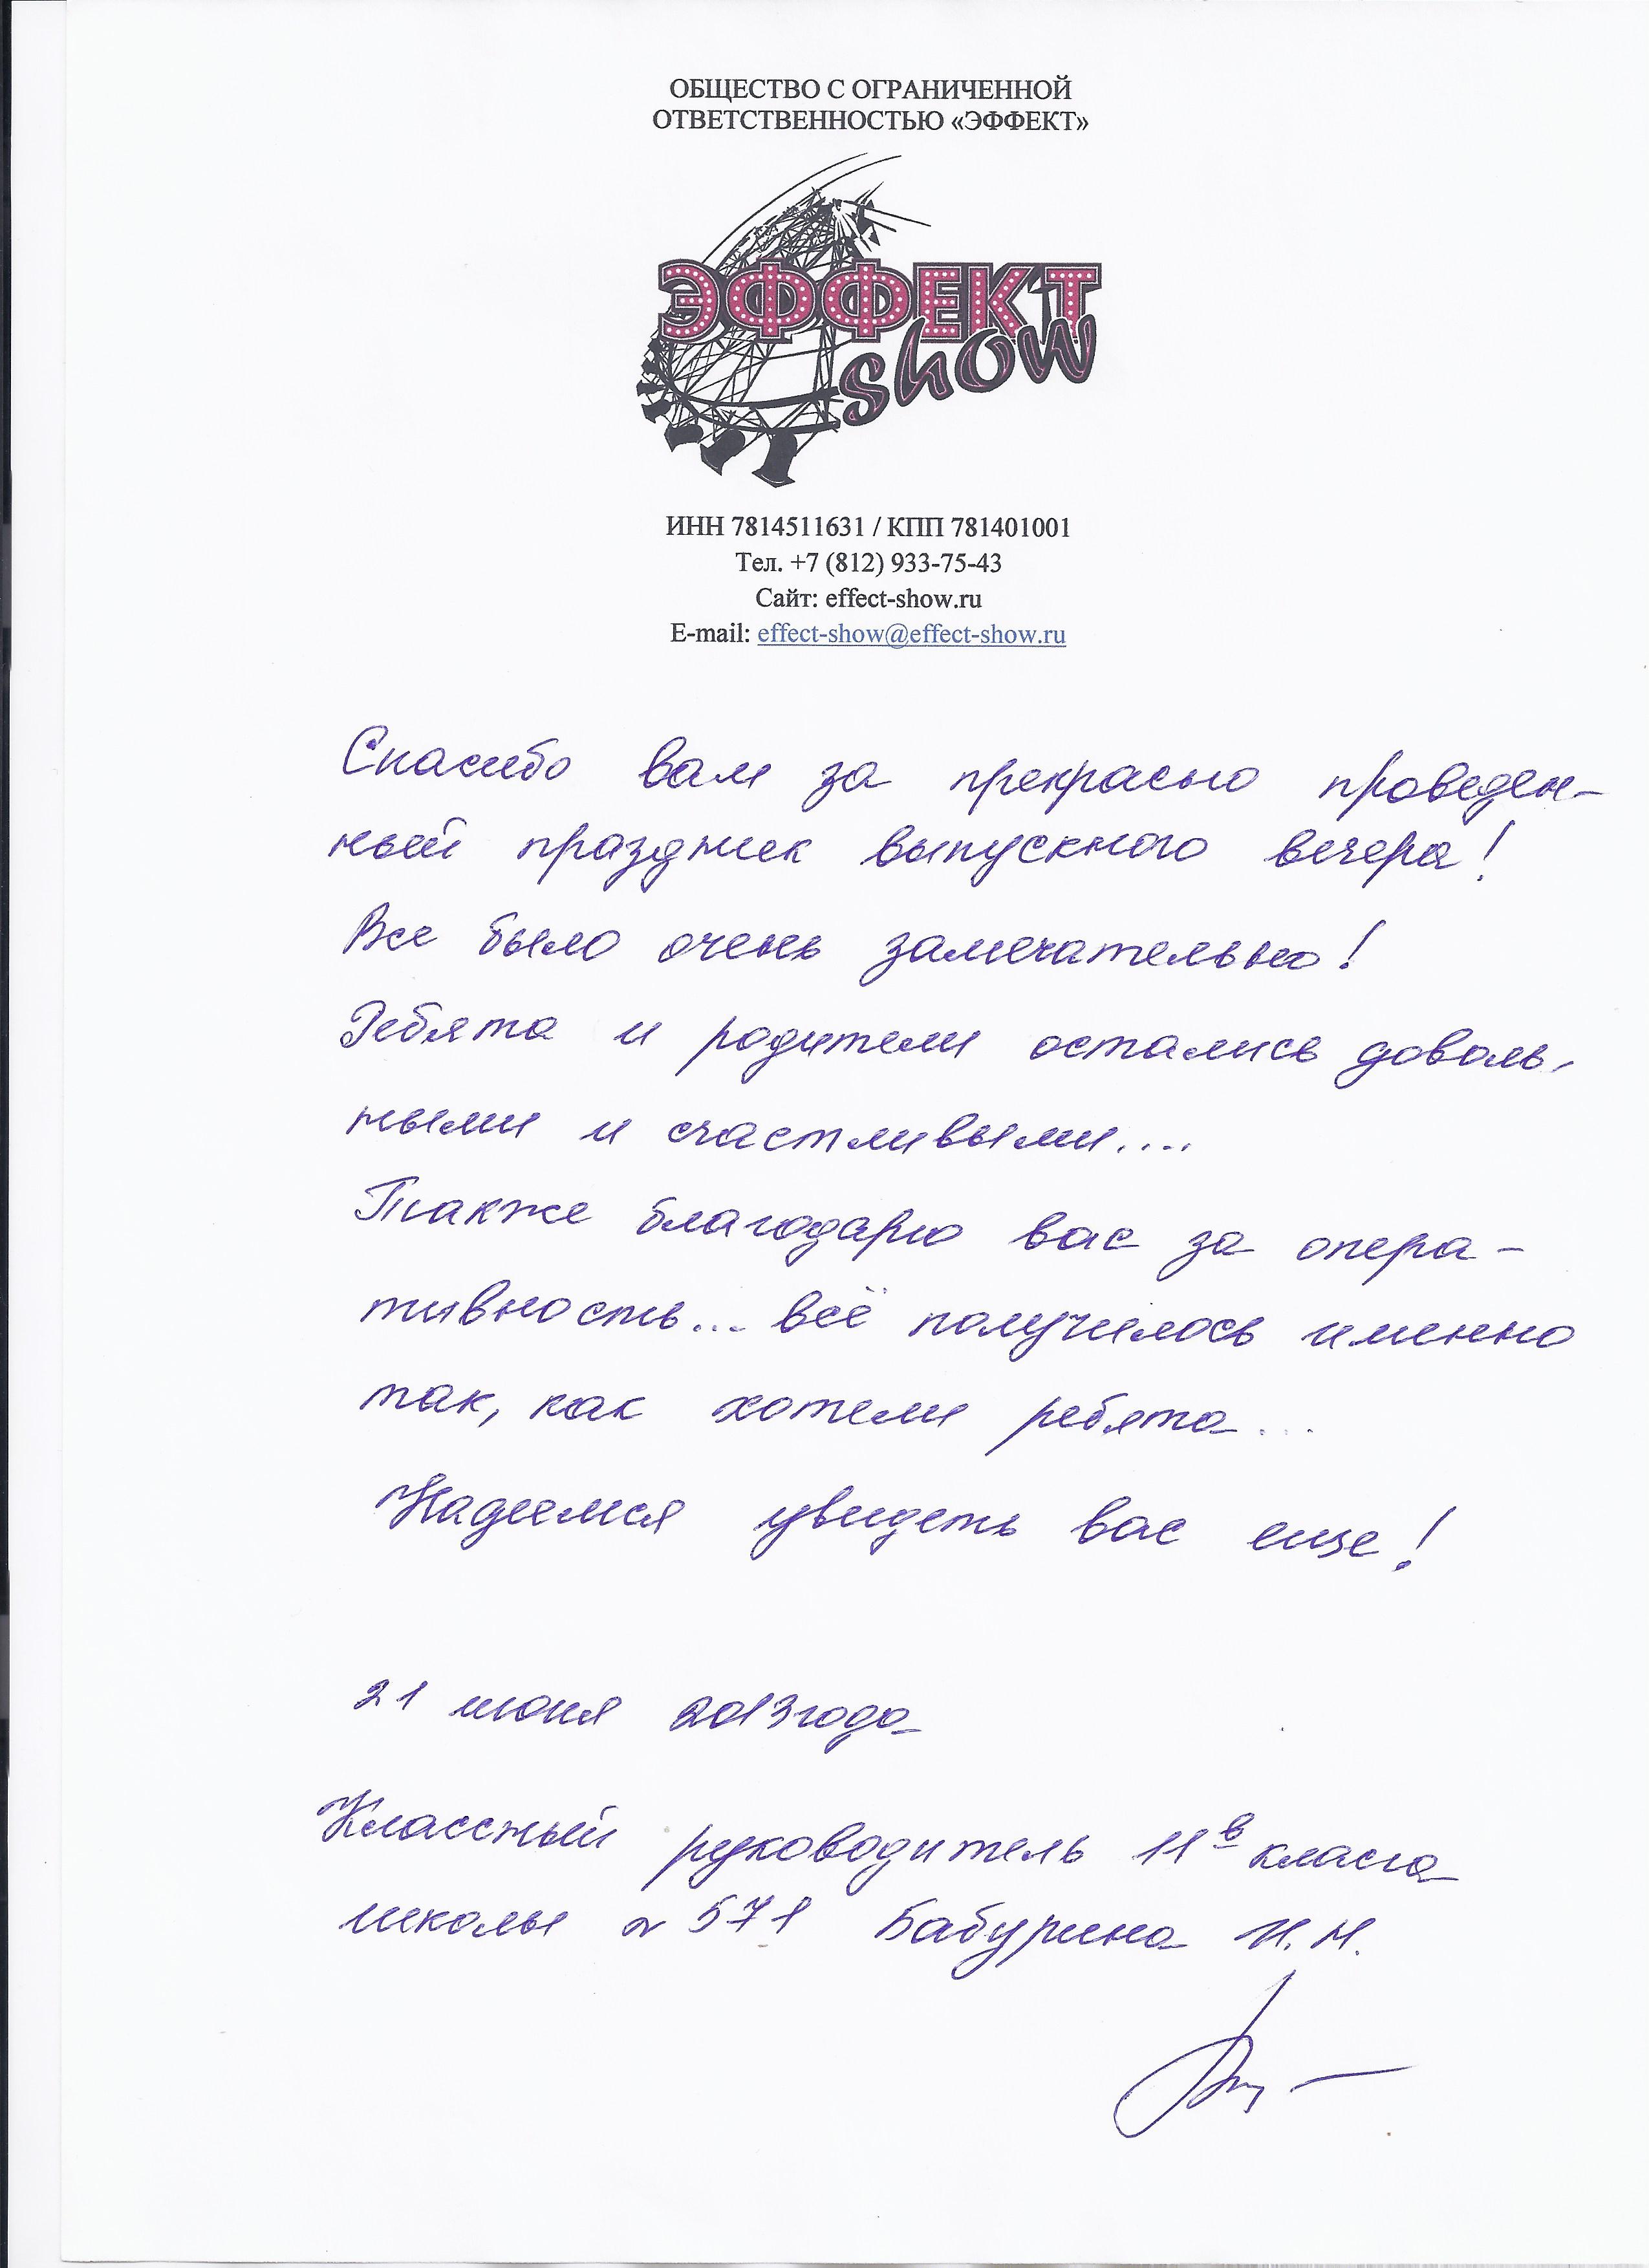 ОБЩЕСТВО С ОГРАНИЧЕННОЙ
ОТВЕТСТВЕННОСТЬЮ «ЭФФЕКТ»
ЭФФЕКТ
show
ИНН 7814511631 / КПП 781401001
Тел. +7 (812) 933-75-43
Сайт: effect-show.ru
E-mail: effect-show@effect-show.ru
Спасибо вам за прекрасно проведен-
ный праздник выпускного вечера!
Все было очень замечательно!
Ребята и родители остались доволь-
ными и счастливыми....
Также благодарю вас за опера-
тивность... всё получилось именно
так, как хотели ребята...
Надеемся увидеть вас еще!
21 июня 2013 года
Классный руководитель 11в класса
школы № 571 Бабурина И.Н.